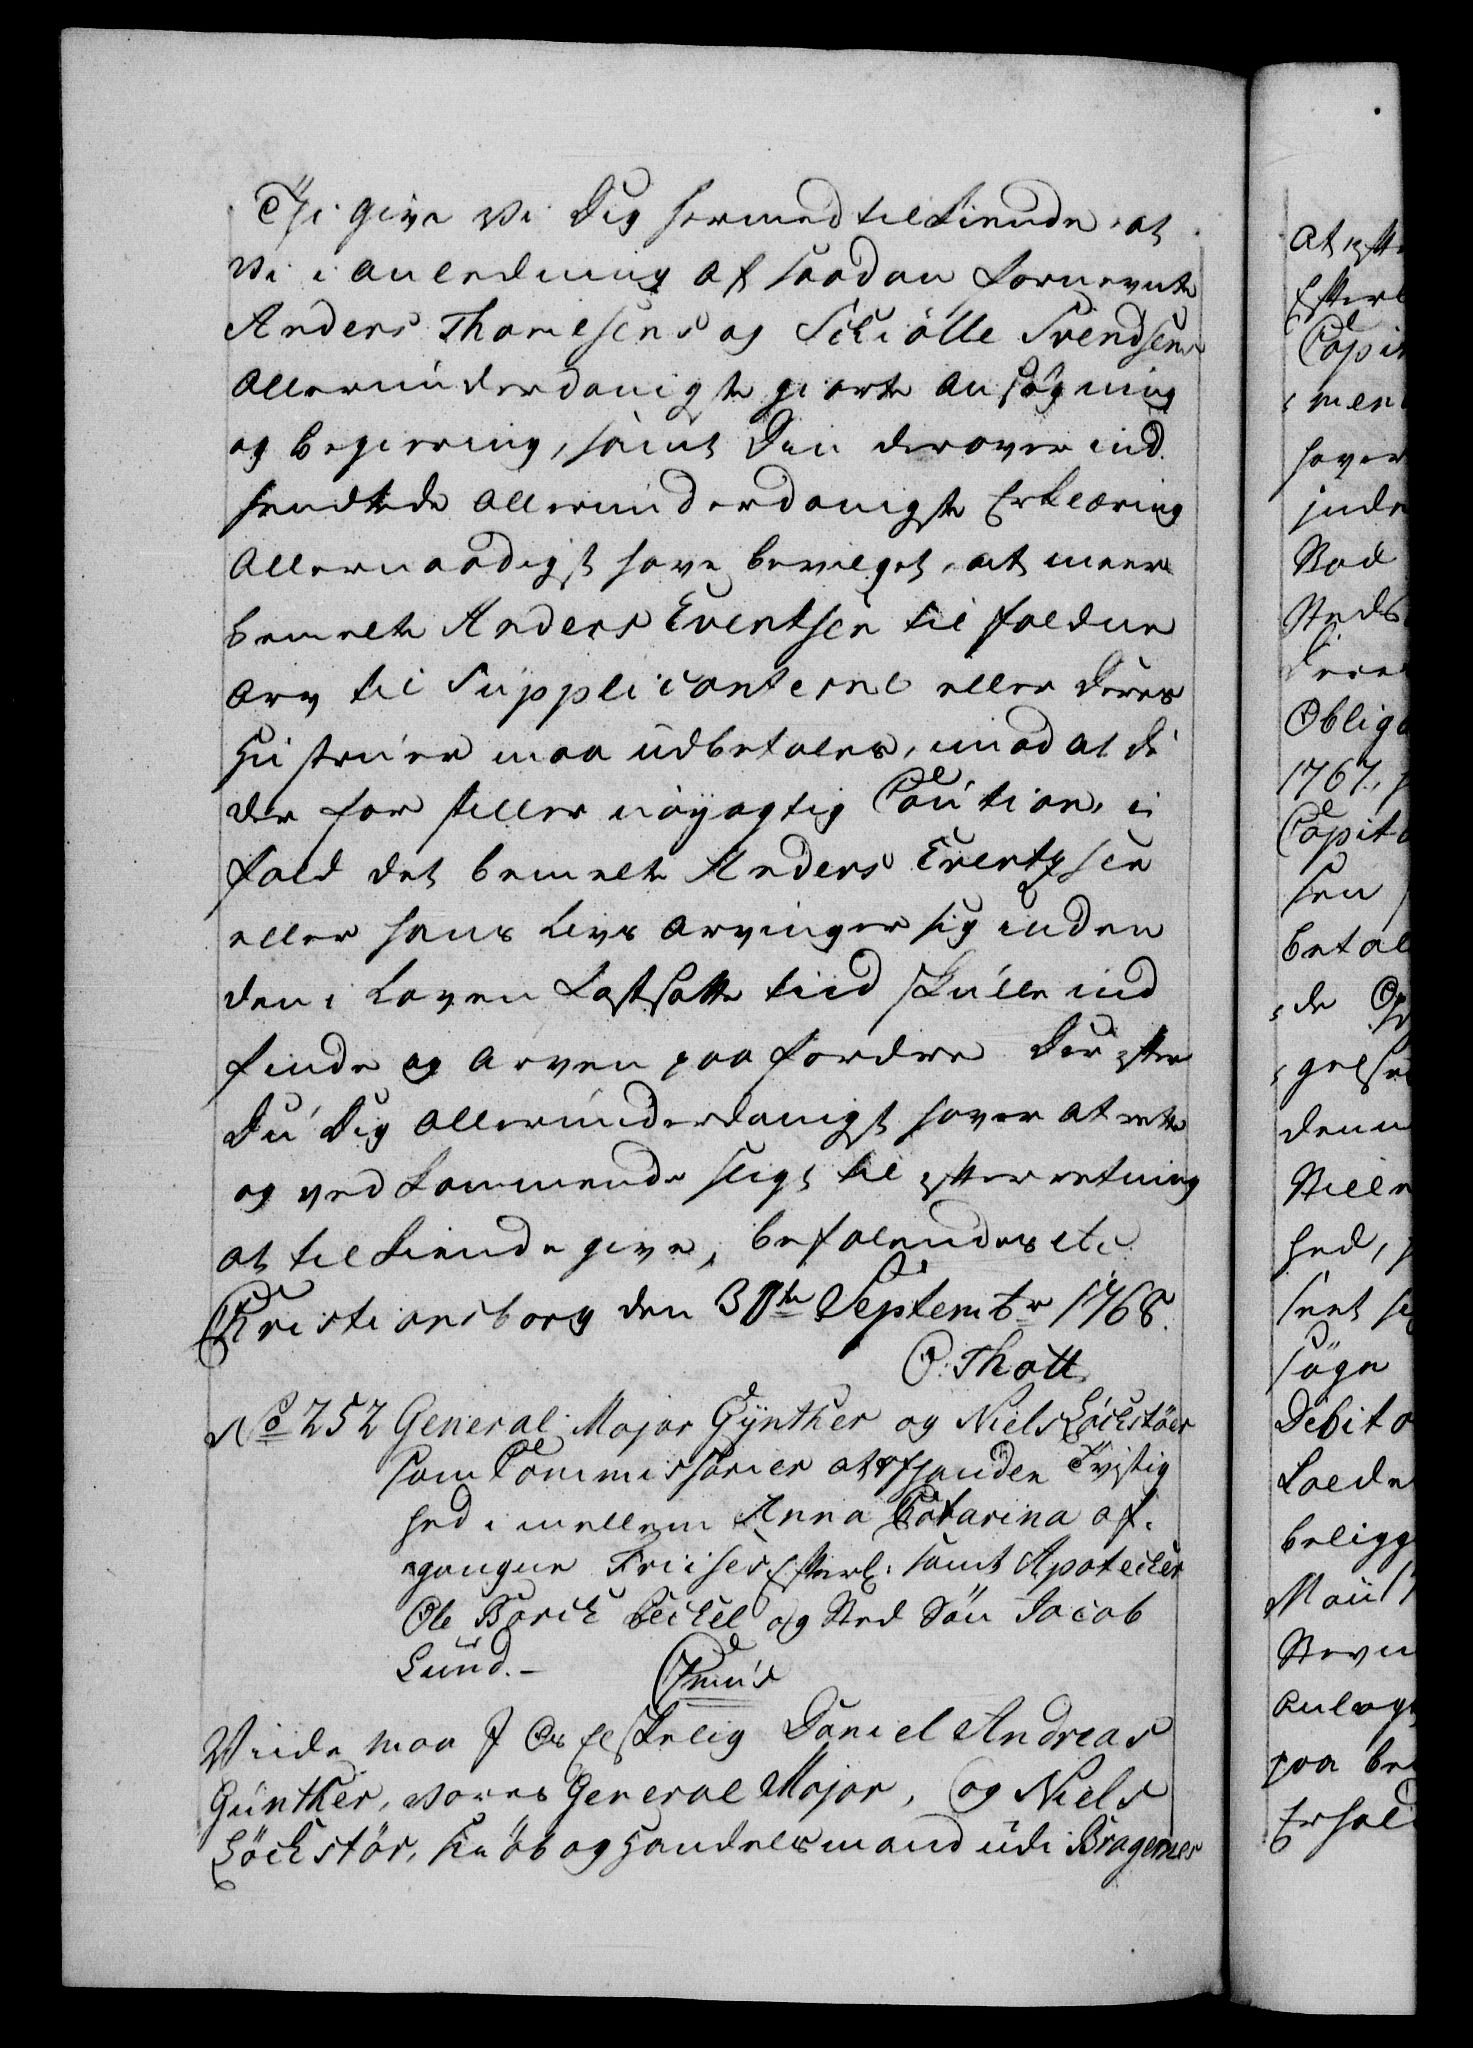 Thi give Vi Dig hermed tilkiende, at
Vi i anledning af saadan fornevnte
Anders Thomesens og Schiølle Svendsens
allerunderdanigste giorte ansøgning
og begiering, samt Din derover ind
sendtede allerunderdanigste Erklæring
allernaadigst have bevilget, at meer
bemelte Anders Eventsen til faldne
arv til Supplicanterne eller deres
Hustruer maa udbetales, imod at de
der for stiller nøyagtig Caution, i
fald det bemelte Anders Eventzsen
eller hans Livs arvinger sig inden
den i Loven fastsatte tiid skulle ind
finde og arven paa fordre. Der efter
Du Dig allerunderdanigst haver at rette
og ved kommende sligt til efterretning
at tilkiende give, befalendes etc
Christiansborg den 30te Septembr 1768.
O. Thott
No 252 General Major Gÿnther og Niels Löchstöer
som Commissarier at afhandle Tvistig
hed i mellem Anna Catarina af.
gangne Friises Efterl: samt Apotecker
Ole Borch Beckel og Sted Søn Jacob
Lund. –
Viide maa I Os elskelig Daniel Andreas
Günther, vores General Major, og Niels
Löchstör, Kiøb og Handelsmand udi Bragernes
at efte
Efterl
Capit
men
haver
inde
Stæd
Steds
Dere
Oblig
1767,
Capita
sen
betal
de
gelse
denn
Stille
hed,
sent si
søge
Debito
kalde
beligg
Maii 17
Stevn
anlag
paa be
Erhold